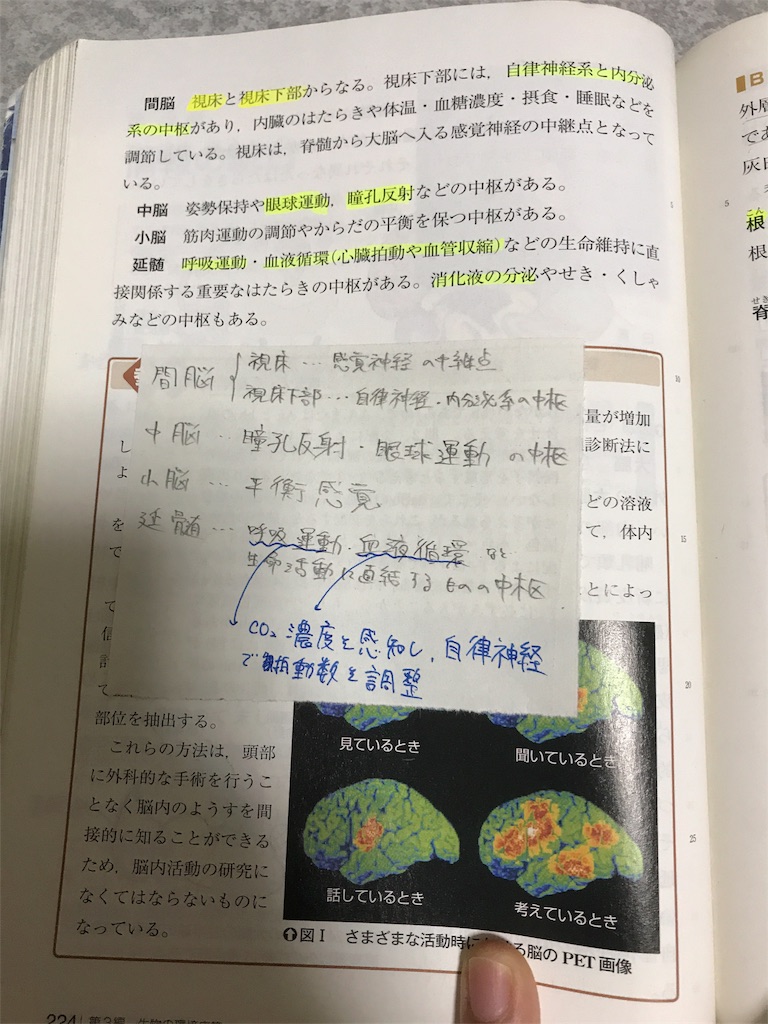 間脳 視床と視床下部からなる。視床下部には，自律神経系と内分泌
系の中枢があり，内臓のはたらきや体温・血糖濃度・摂食・睡眠などを
調節している。視床は，脊髄から大脳へ入る感覚神経の中継点となって
いる。
中脳 姿勢保持や眼球運動，瞳孔反射などの中枢がある。
小脳 筋肉運動の調節やからだの平衡を保つ中枢がある。
延髄 呼吸運動・血液循環(心臓拍動や血管収縮)などの生命維持に直
接関係する重要なはたらきの中枢がある。消化液の分泌やせき・くしゃ
みなどの中枢もある。
間脳
視床…感覚神経の中継点
視床下部…自律神経・内分泌系の中枢
中脳…瞳孔反射・眼球運動の中枢
小脳…平衡感覚
延髄…呼吸運動・血液循環など
生命活動に直結するものの中枢
CO₂濃度を感知し，自律神経
で拍動数を調整
量が増加
し
診断法に
よ
どの溶液
を
て，体内
で
とによっ
て
部位を抽出する。
これらの方法は，頭部
に外科的な手術を行うこ
となく脳内のようすを間
接的に知ることができる
ため，脳内活動の研究に
なくてはならないものに
なっている。
見ているとき
聞いているとき
話しているとき
考えているとき
図Ⅰ さまざまな活動時に る脳のPET画像
5
10
15
20
25
224
B
外層
であ
灰白
5
こん
根
根
せき
脊